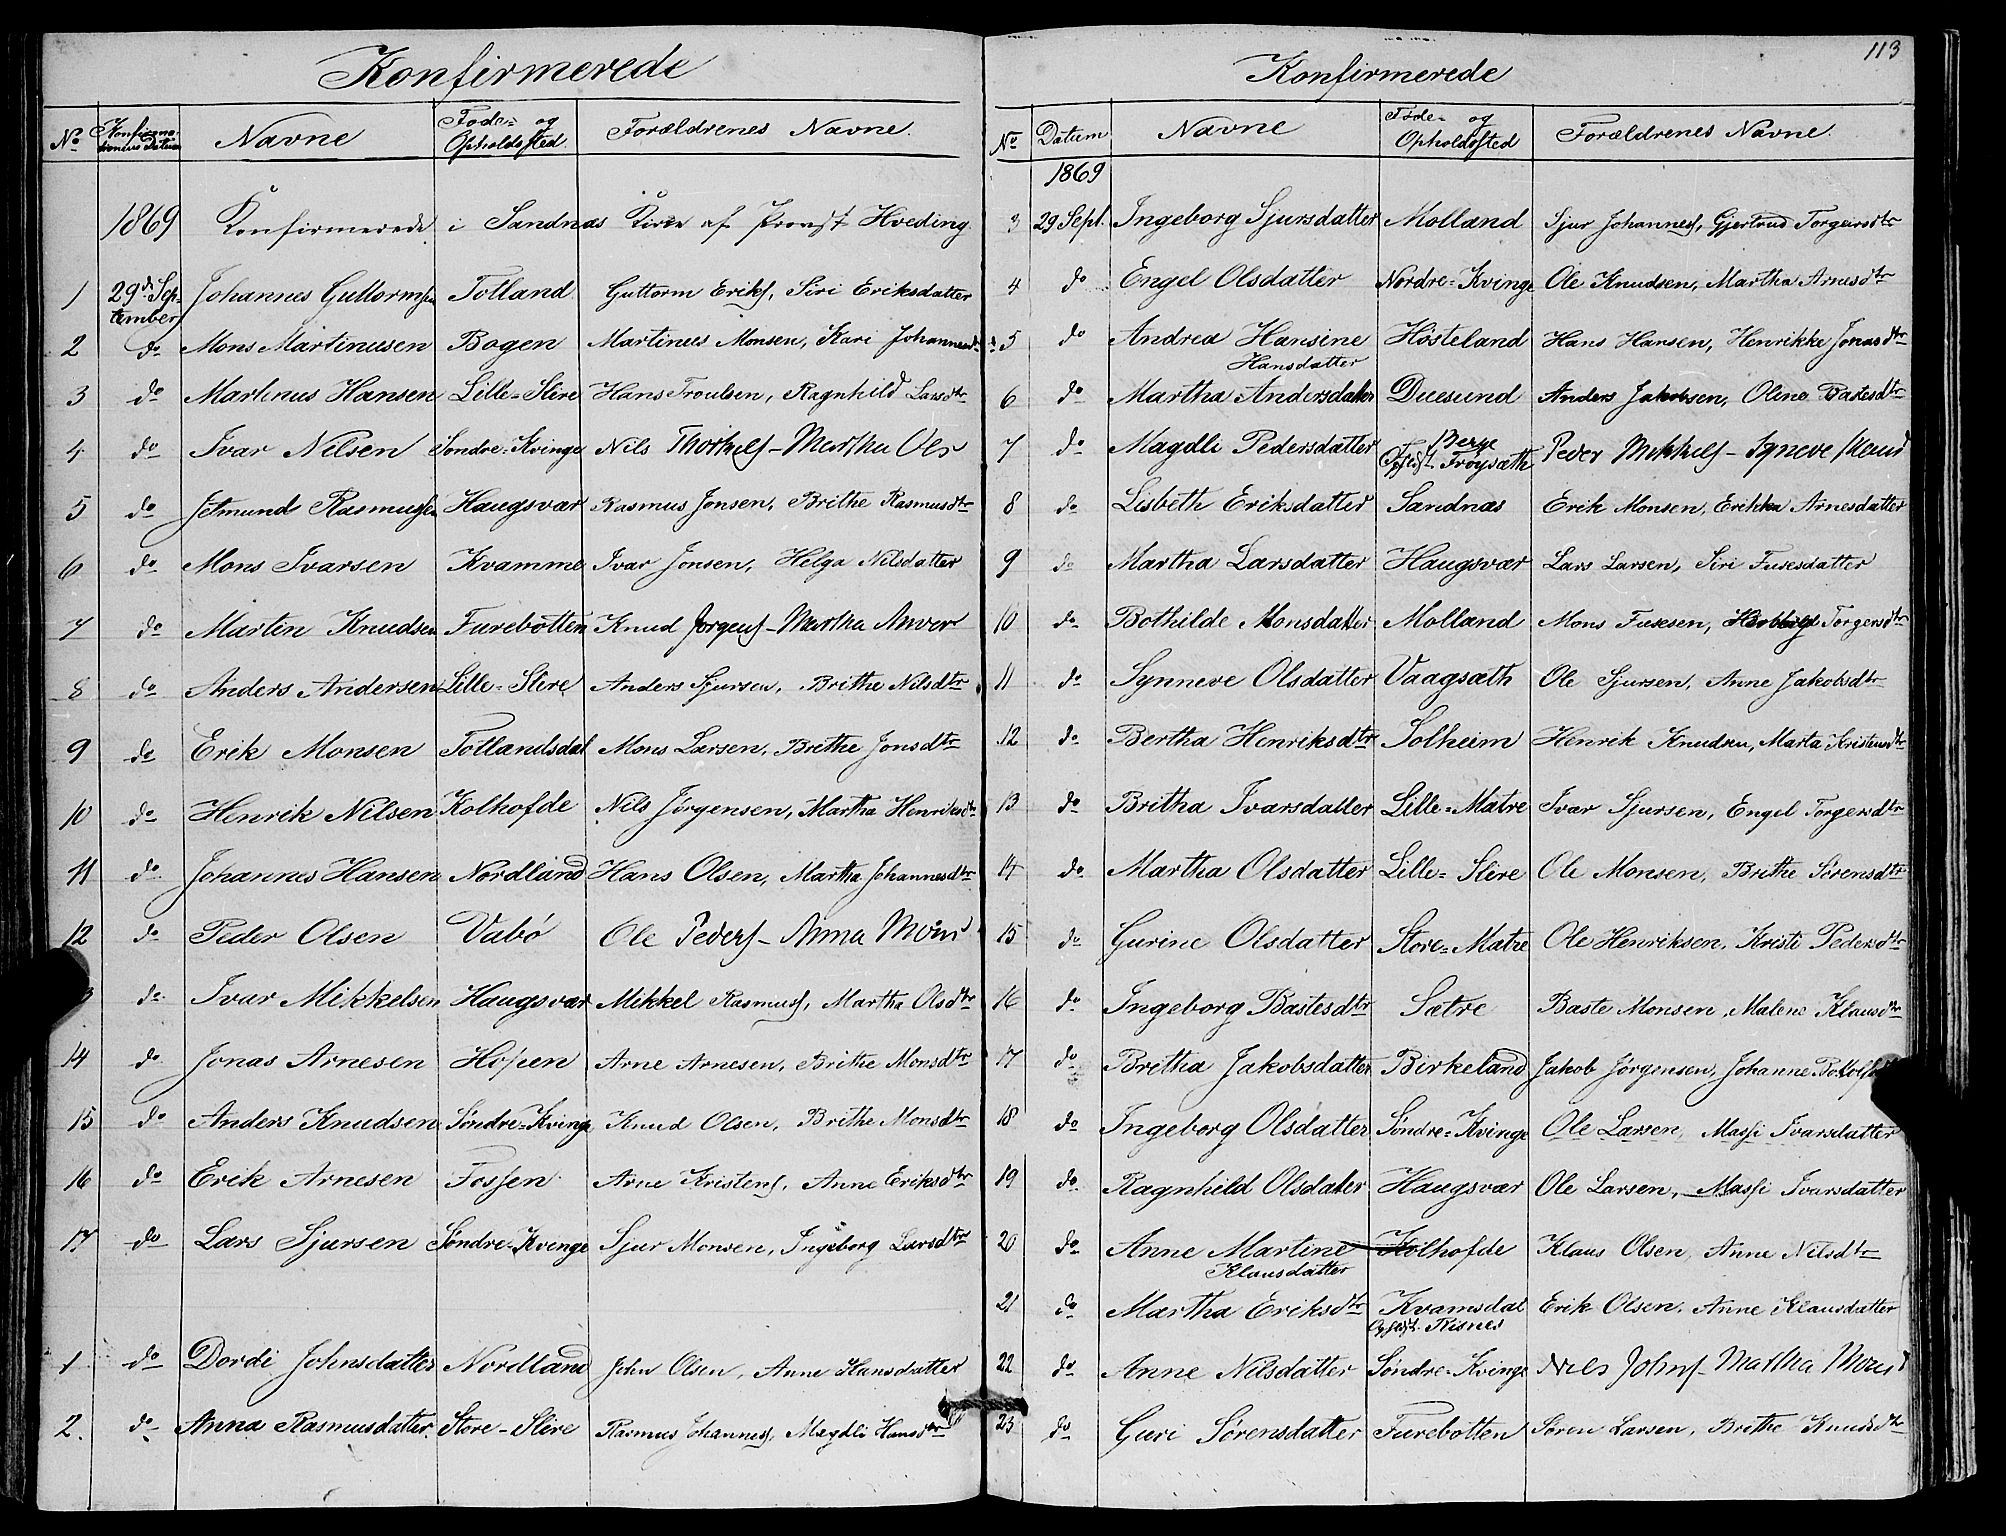 Konfirmerede
No Konfirma-tionens Datum Navne Føde- og Opholdssted Forældrenes Navne.
1869 Konfirmerede i Sandnæs Kirke af Provst Hveding
1 29de September Johannes Guttormsen Totland Guttorm Eriks., Siri Eriksdatter
2 do Mons Martinusen Bogen Martinus Monsen, Kari Johannesdtr
3 do Martinus Hansen Lille-Slire Hans Troulsen, Ragnhild Larsdtr
4 do Ivar Nilsen Søndre-Kvinge Nils Thorkels - Martha Ols
5 do Jetmund Rasmussen Haugsvær Rasmus Jonsen, Brithe Rasmusdtr
6 do Mons Ivarsen Kvamme Ivar Jonsen, Helga Nilsdatter
7 do Marten Knudsen Furebotten Knud Jørgens - Martha
8 do Anders Andersen Lille-Slire Anders Sjursen, Brithe Nilsdtr
9 do Erik Monsen Totlandsdal Mons Larsen, Brithe Jonsdtr
10 do Henrik Nilsen Kolhofde Nils Jørgensen, Martha Henriksdtr
11 do Johannes Hansen Nordland Hans Olsen, Martha Johannesdtr
12 do Peder Olsen Vabø Ole Peders - Anna Mons
do Ivar Mikkelsen Haugsvær Mikkel Rasmuss, Martha Olsdtr
14 do Jonas Arnesen Hopen Arne Arnesen, Brithe Monsdtr
15 do Anders Knudsen Søndre-Kvinge Knud Olsen, Brithe Monsdtr
16 do Erik Arnesen Fossen Arne Kristens, Anne Eriksdtr
17 do Lars Sjursen Søndre-Kvinge Sjur Monsen, Ingeborg Larsdtr
1 do Dordi Johnsdatter Nordland John Olsen, Anne Hansdatter
2. do Anna Rasmusdatter Store-Slire Rasmus Johanness, Magdli Hansdtr
113
Konfirmerede
No Datum Navne Føde- og Opholdssted Forældrenes Navne.
1869
3 29 Sept. Ingeborg Sjursdatter Molland Sjur Johanness, Gjertrud Torgersdtr
4 do Engel Olsdatter Nordre-Kvinge Ole Knudsen, Martha Arnesdtr
5 do Andrea Hansine Hansdatter Høsteland Hans Hansen, Henrikke Jonasdtr
6 do Martha Andersdatter Duesund Anders Jakobsen, Oline Bastesdtr
7 do Magdli Pedersdatter Berge Opfødst. Frøysæth Peder Mikkels - Synneve Knud
8 do Lisbeth Eriksdatter Sandnæs Erik Monsen, Erikka Arnesdatter
9 do Martha Larsdatter Haugsvær Lars Larsen, Siri Furesdatter
10 do Bothilde Monsdatter Molland Mons Fusesen, Torgersdtr
11 do Synneve Olsdatter Vaagsæth Ole Sjursen, Anne Jakobsdtr
12 do Bertha Henriksdtr Solheim Henrik Knudsen, Marta Kristensdtr
13 do Britha Ivarsdatter Lille-Matre Ivar Sjursen, Engel Torgersdtr
14 do Martha Olsdatter Lille-Slire Ole Monsen, Brithe Sørensdtr
15 do Gurine Olsdatter Store-Matre Ole Henriksen, Kristi Pedersdtr
16 do Ingeborg Bastesdtr Sætre Baste Monsen, Malene Klausdtr
17 do Britha Jakobsdatter Birkeland Jakob Jørgensen, Johanne
18 do Ingeborg Olsdatter Søndre-Kvinge Ole Larsen, Massi Ivarsdatter
19 do Ragnhild Olsdatter Haugsvær Ole Larsen, Massi Ivarsdatter
20 do Anne Martine Klausdatter Kolhofde Klaus Olsen, Anne Nilsdtr
21 do Martha Eriksdtr Kvamsdal Opfødst. Risnes Erik Olsen, Anne Klausdatter
22 do Anne Nilsdatter Søndre-Kvinge Nils Johns - Martha Monsd
23 do Guri Sørensdatter Furebotten Søren Larsen, Brithe Knudsdtr